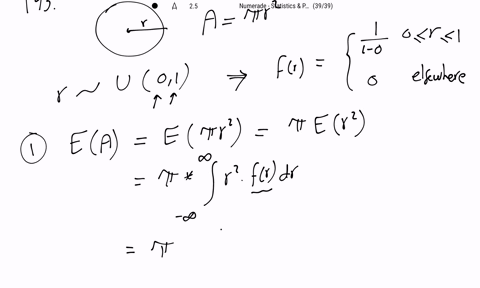 193.
2.5 Numerade - Statistics & P... (39/39)
r A = πr²
r ~ U (0,1) ⇒ f(r) = { 1/(1-0) 0 ≤ r ≤ 1
0 elsewhere
① E(A) = E(πr²) = π E(r²)
= π * ∫_{-∞}^{∞} r² · f(r) dr
= π